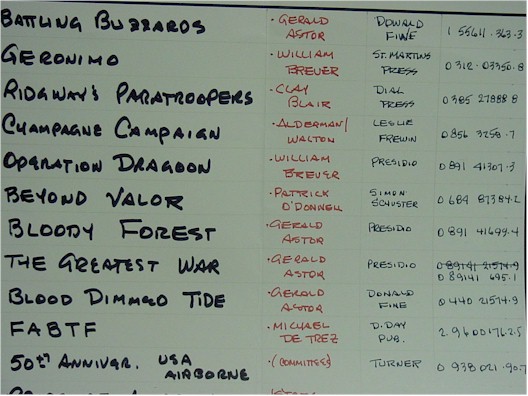 BATTLING BUZZARDS · GERALD ASTOR DONALD FINE 1 55611 · 363 · 3
GERONIMO · WILLIAM BREUER ST. MARTINS PRESS 0 312 · 03350 · 8
RIDGWAY'S PARATROOPERS · CLAY BLAIR DIAL PRESS 0 385 27888 8
CHAMPAGNE CAMPAIGN · ALDERMAN/ WALTON LESLIE FREWIN 0 856 3250 · 7
OPERATION DRAGOON · WILLIAM BREUER PRESIDIO 0 891 41307 · 3
BEYOND VALOR · PATRICK O'DONNELL SIMON SCHUSTER 0 684 87384 · 2
BLOODY FOREST · GERALD ASTOR PRESIDIO 0 891 41699 · 4
THE GREATEST WAR · GERALD ASTOR PRESIDIO 0 89141 21574 · 9
0 89141 695 · 1
BLOOD DIMMED TIDE · GERALD ASTOR DONALD FINE 0 440 21574 · 9
FABTF · MICHAEL DE TREZ D. DAY PUB. 2 · 9600176 · 2 · 5
50TH ANNIVER. USA AIRBORNE · (COMMITTEES) TURNER 0 938 021 · 90 · 7